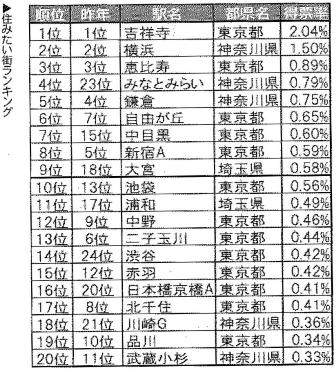 ▶住みたい街ランキング
順位 昨年 駅名 都県名 得票率
1位 1位 吉祥寺 東京都 2.04%
2位 2位 横浜 神奈川県 1.50%
3位 3位 恵比寿 東京都 0.89%
4位 23位 みなとみらい 神奈川県 0.79%
5位 4位 鎌倉 神奈川県 0.75%
6位 7位 自由が丘 東京都 0.65%
7位 15位 中目黒 東京都 0.60%
8位 5位 新宿A 東京都 0.59%
9位 18位 大宮 埼玉県 0.58%
10位 13位 池袋 東京都 0.56%
11位 17位 浦和 埼玉県 0.49%
12位 9位 中野 東京都 0.46%
13位 6位 二子玉川 東京都 0.44%
14位 24位 渋谷 東京都 0.42%
15位 12位 赤羽 東京都 0.42%
16位 20位 日本橋京橋A 東京都 0.41%
17位 8位 北千住 東京都 0.41%
18位 21位 川崎G 神奈川県 0.36%
19位 10位 品川 東京都 0.34%
20位 11位 武蔵小杉 神奈川県 0.33%